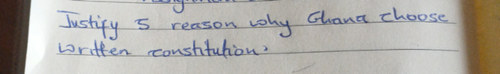 Justify 5 reason why Ghana choose
written constitution.